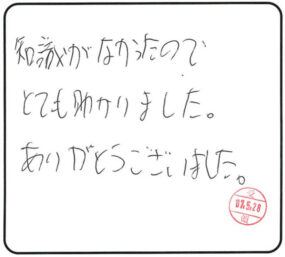 知識がなかったので
とても助かりました。
ありがとうございました。
5.28